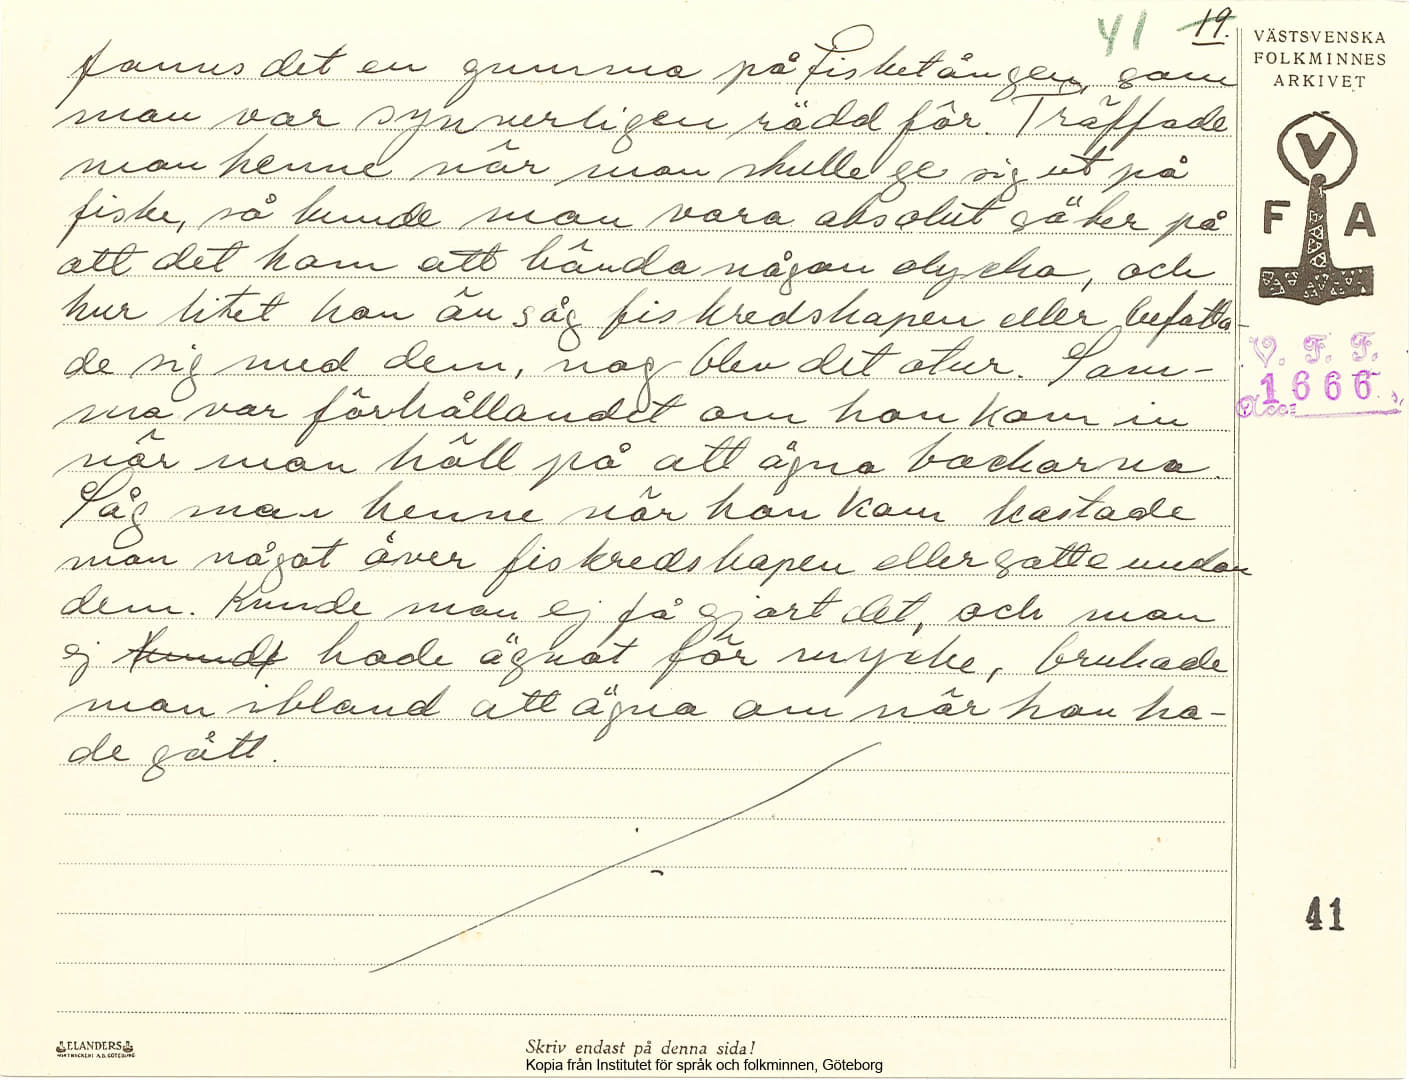 41 19.
VÄSTSVENSKA
FOLKMINNES
ARKIVET
V
F A
V. F. F.
1666
Acc:
fanns det en gumma på Fisketången, som
man var synnerligen rädd för. Träffade
man henne när man skulle ge sig ut på
fiske, så kunde man vara absolut säker på
att det kom att hända någon olycka, och
hur litet hon än såg fiskredskapen eller befatta-
de sig med dem, nog blev det otur. Sam-
ma var förhållandet om hon kom in
när man höll på att ägna backorna.
Såg man henne när hon kom kastade
man något över fiskredskapen eller satte undan
dem. Kunde man ej få gjort det, och man
ej kunde hade ägnat för mycke, brukade
man ibland att ägna om när hon ha-
de gått.
41
ELANDERS
Skriv endast på denna sida!
Kopia från Institutet för språk och folkminnen, Göteborg